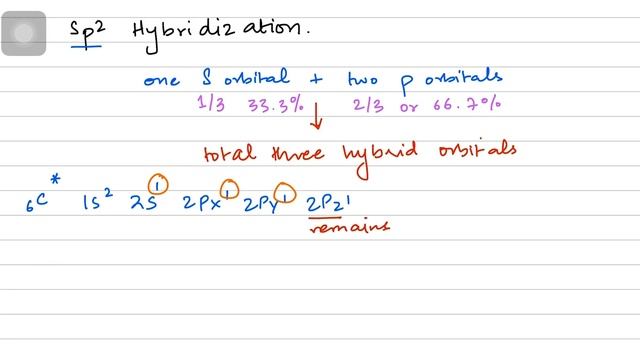 Sp² Hybridization.
one S orbital + two p orbitals
1/3 33.3% 2/3 or 66.7%
total three hybrid orbitals
₆C* 1s² 2s¹ 2Px¹ 2Py¹ 2Pz¹
remains